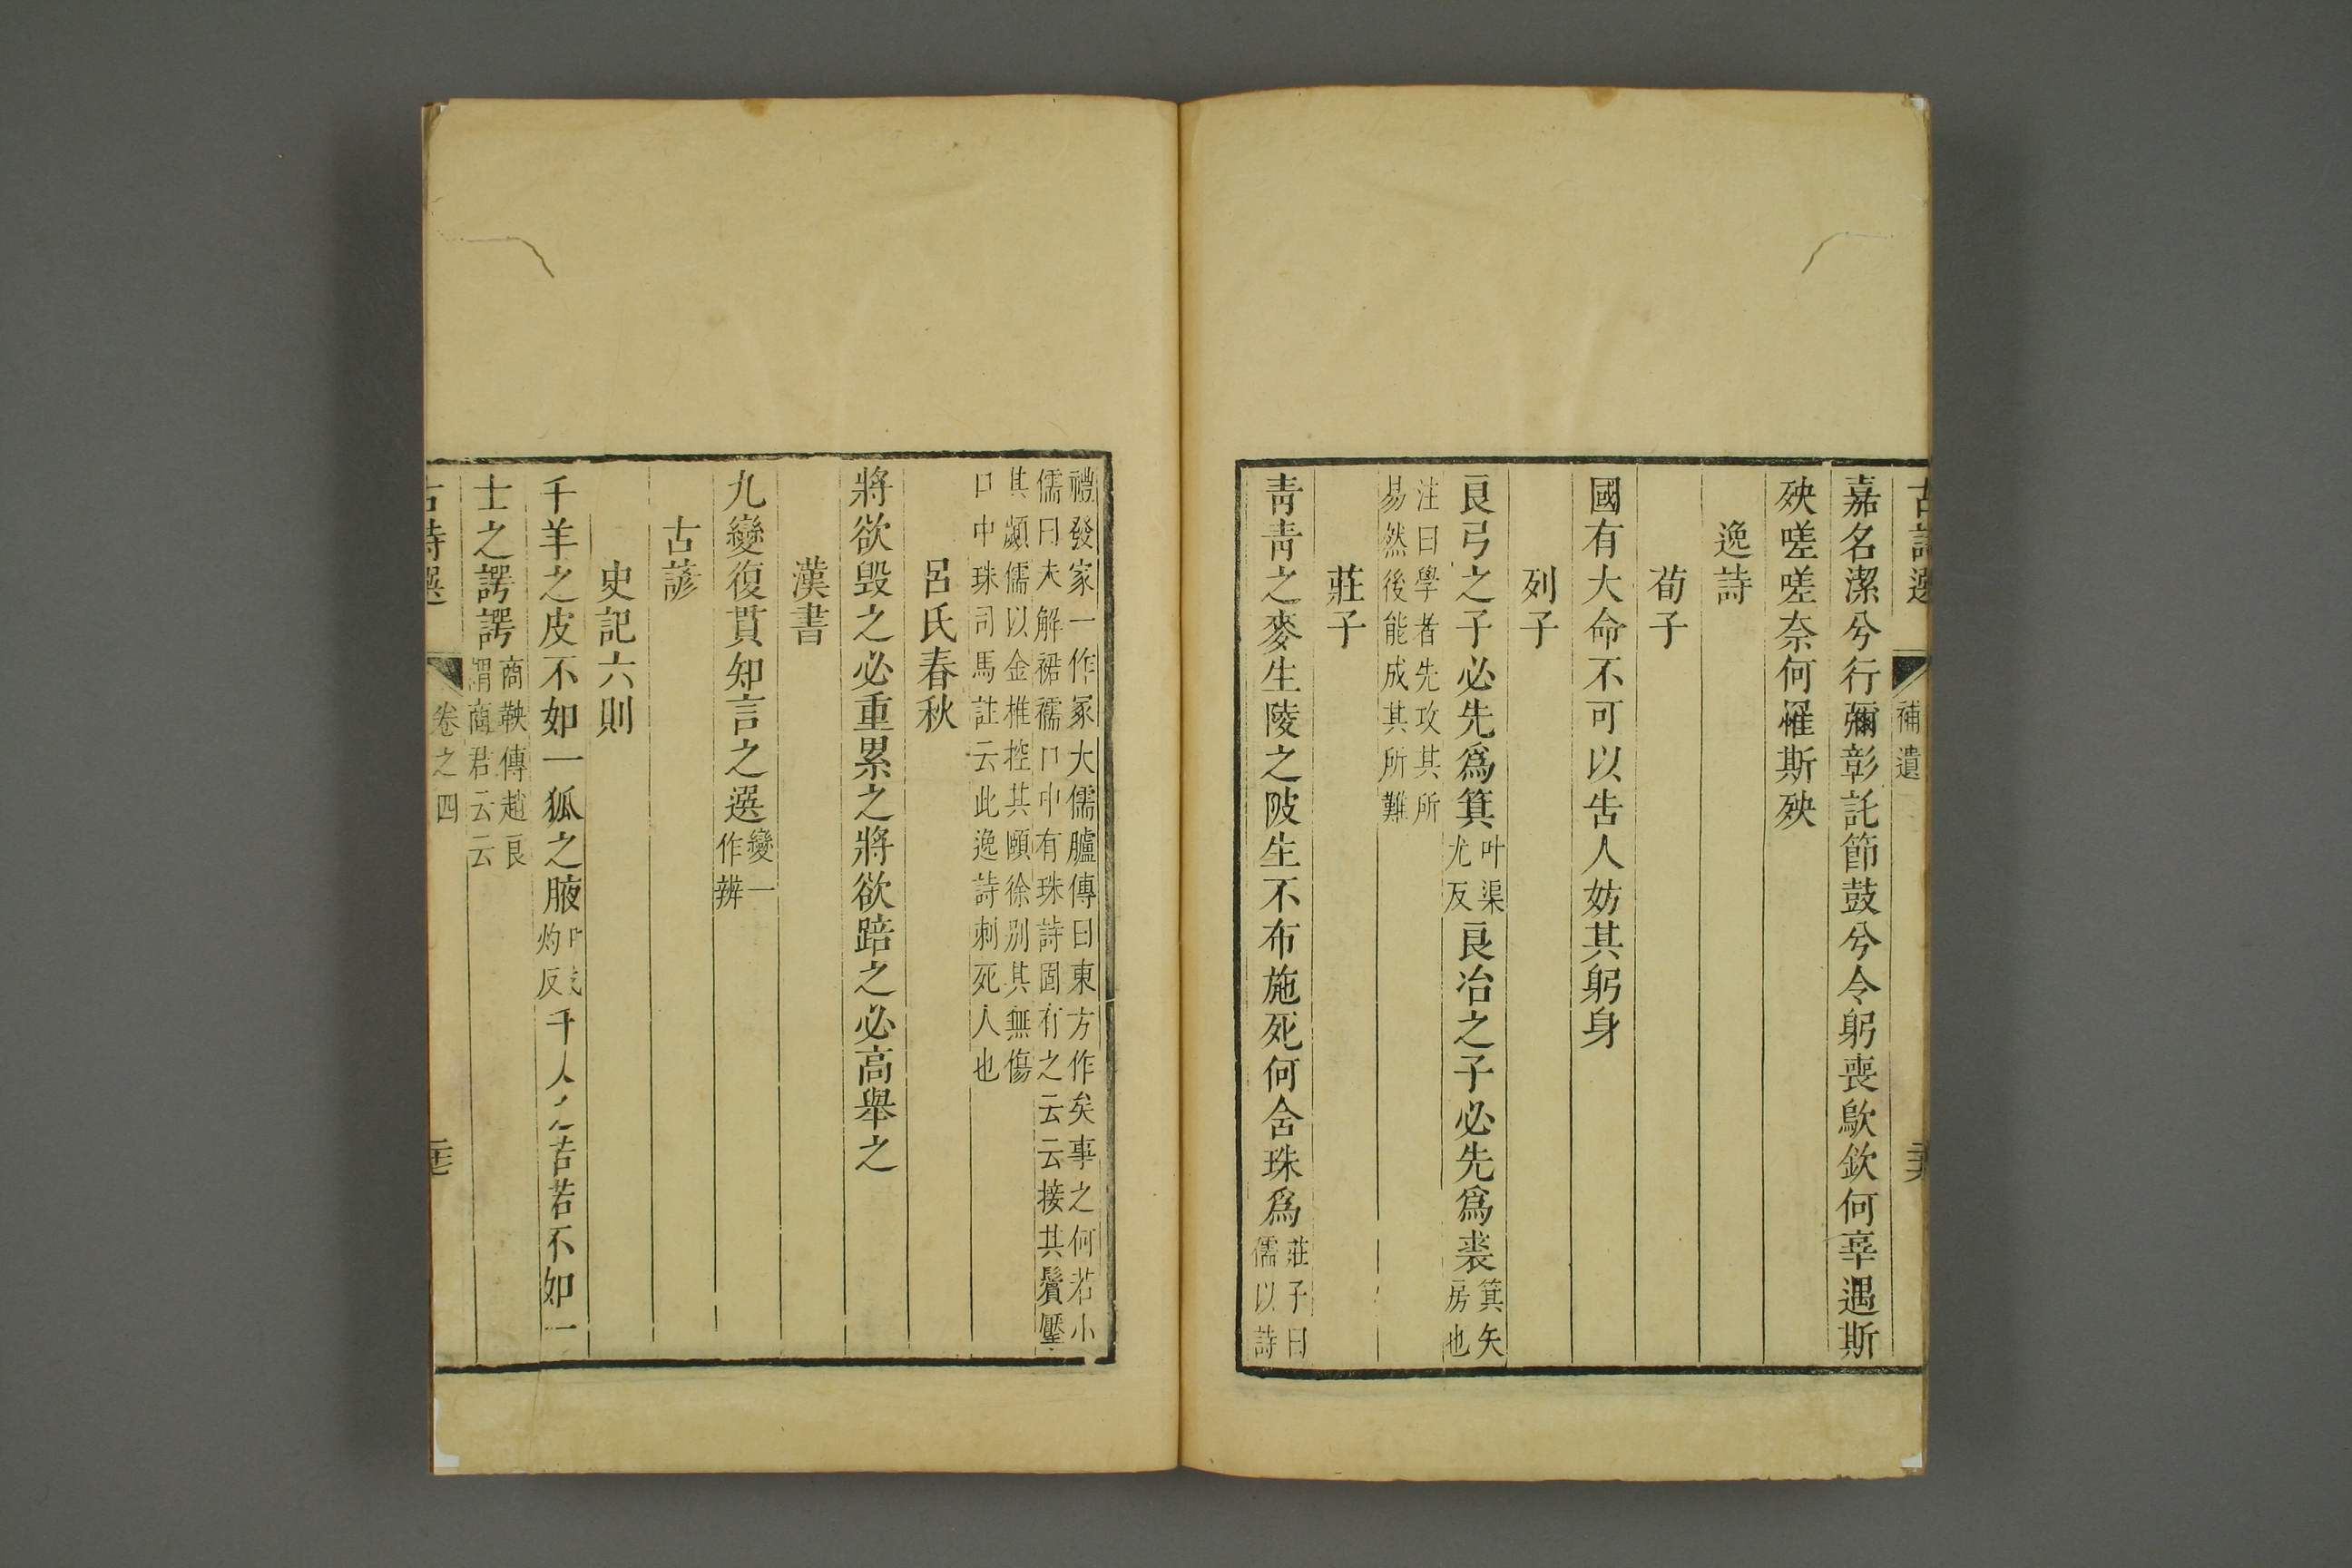 古詩選
補遺
嘉名潔兮行彌彰託節鼓兮令躬喪歍欽何辜遇斯
殃嗟嗟奈何罹斯殃
逸詩
荀子
國有大命不可以告人妨其躬身
列子
良弓之子必先爲箕叶渠
尤反良冶之子必先爲裘箕矢
房也
注曰學者先攻其所
易然後能成其所難
莊子
青青之麥生陵之陂生不布施死何含珠爲莊子曰
儒以詩
禮發家一作冢大儒臚傳曰東方作矣事之何若小
儒曰未解裙襦口中有珠詩固有之云云接其鬢壓
其顪儒以金椎控其頤徐別其無傷
口中珠司馬註云此逸詩刺死人也
呂氏春秋
將欲毀之必重累之將欲踣之必高舉之
漢書
九變復貫知言之選變一
作辨
古諺
史記六則
千羊之皮不如一狐之腋叶弋
灼反千人之諾若不如一
士之諤諤商鞅傳趙良
謂商君云云
古詩選
卷之四